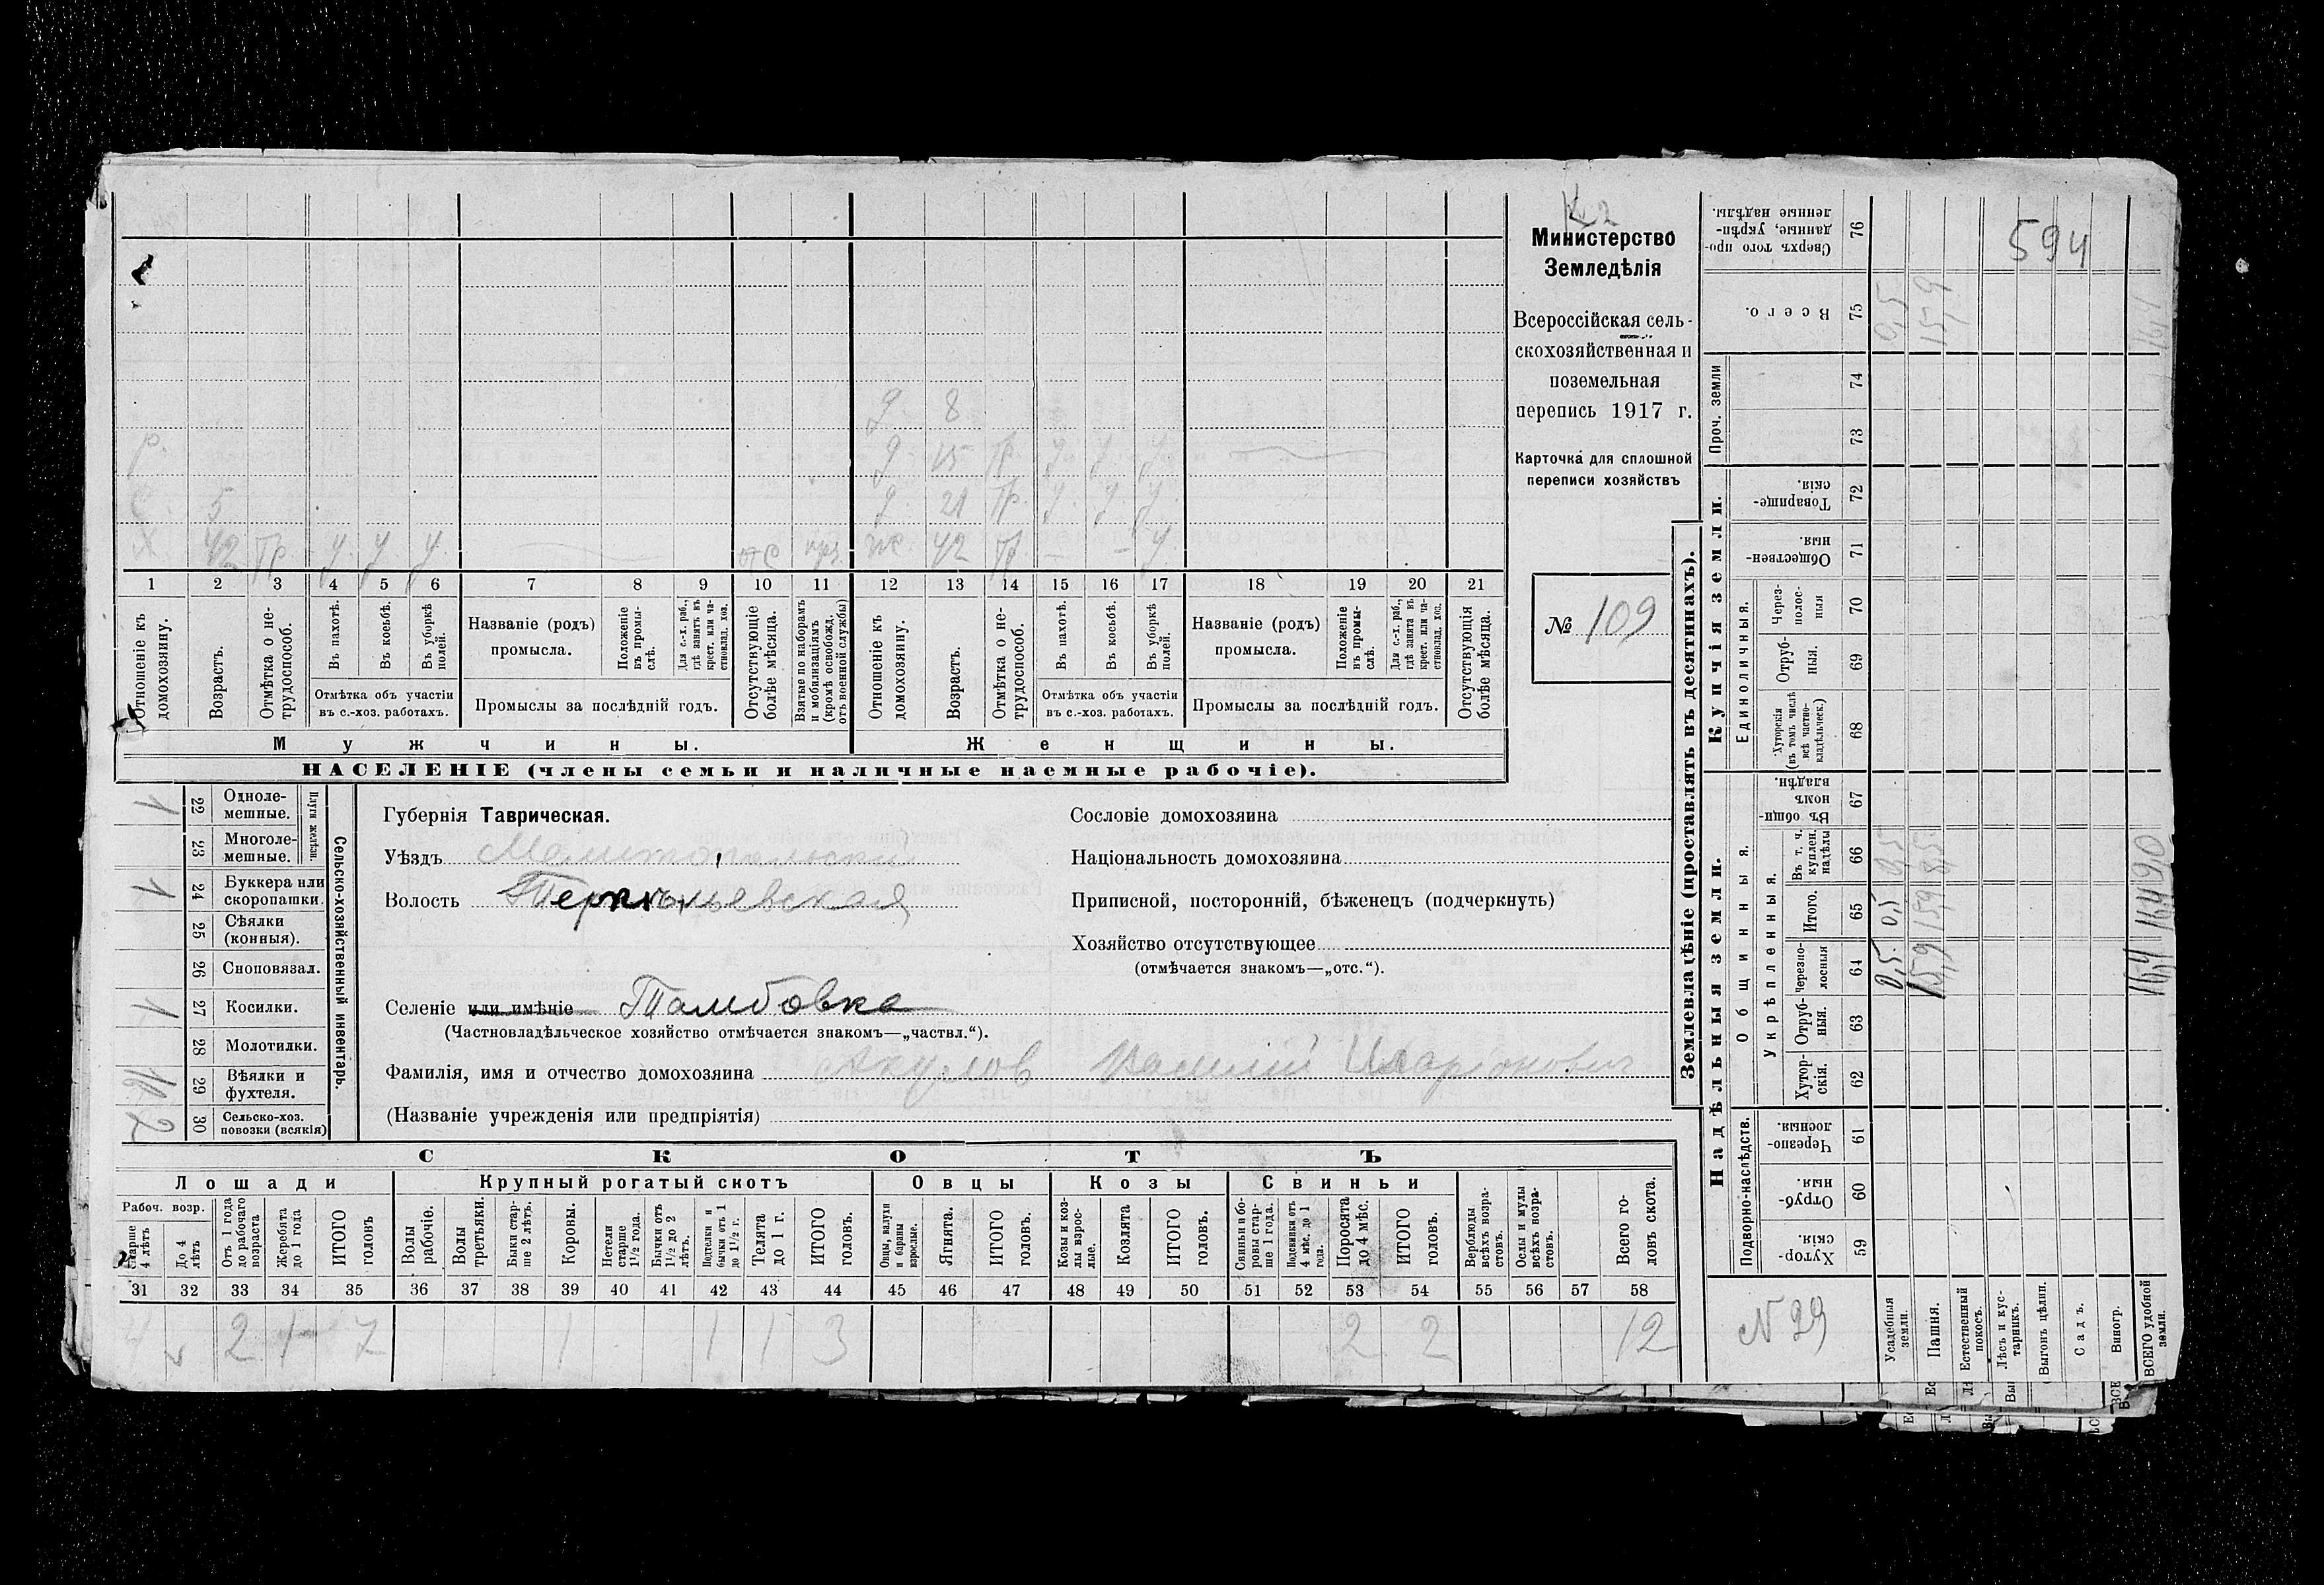 № 2
Министерство
Земледѣлія
Всероссійская сель-
скохозяйственная и
поземельная
перепись 1917 г.
Карточка для сплошной
переписи хозяйствъ
№ 109
д 8
р.
д 15 тр. у у у
с. 5
д 21 тр. у у у
х. 42 тр. у у у
ж 42 тр. — — у
1 2 3 4 5 6 7 8 9 10 11 12 13 14 15 16 17 18 19 20 21
Отношеніе къ домохозяину.
Возрастъ.
Отмѣтка о не-трудоспособ.
Въ пахотѣ.
Въ косьбѣ.
Въ уборкѣ полей.
Отмѣтка объ участіи
въ с.-хоз. работахъ.
Названіе (родъ)
промысла.
Положеніе въ промы-слѣ.
Для с.-х. раб., гдѣ занятъ въ крест. или ча-стновлад. хоз.
Промыслы за послѣдній годъ.
Отсутствующіе болѣе мѣсяца.
Взятые по наборамъ и мобилизаціямъ (кромѣ освобожд. отъ военной службы)
Отношеніе къ домохозяину.
Возрастъ.
Отмѣтка о не-трудоспособ.
Въ пахотѣ.
Въ косьбѣ.
Въ уборкѣ полей.
Отмѣтка объ участіи
въ с.-хоз. работахъ.
Названіе (родъ)
промысла.
Положеніе въ промы-слѣ.
Для с.-х. раб., гдѣ занята въ крест. или ча-стновлад. хоз.
Промыслы за послѣдній годъ.
Отсутствующія болѣе мѣсяца.
Мужчины.
Женщины.
НАСЕЛЕНІЕ (члены семьи и наличные наемные рабочіе).
Сельско-хозяйственный инвентарь.
Плуги желѣзн.
1 22 Одноле-мешные.
23 Многоле-мешные.
1 24 Буккера или скоропашки.
25 Сѣялки (конныя).
26 Сноповязал.
1 27 Косилки.
28 Молотилки.
29 Вѣялки и фухтеля.
2 30 Сельско-хоз. повозки (всякія)
Губернія Таврическая.
Уѣздъ Мелитопольскій
Волость
Селеніе или имѣніе Тамбовка
(Частновладѣльческое хозяйство отмѣчается знакомъ—„частвл.“).
Фамилія, имя и отчество домохозяина Акулов Василій Иларіонович
(Названіе учрежденія или предпріятія)
Сословіе домохозяина
Національность домохозяина
Приписной, посторонній, бѣженецъ (подчеркнуть)
Хозяйство отсутствующее
(отмѣчается знакомъ—„отс.“).
СКОТЪ
Лошади
Крупный рогатый скотъ
Овцы
Козы
Свиньи
Рабоч. возр.
Старше 4 лѣтъ
До 4 лѣтъ
Отъ 1 года до рабочаго возраста
Жеребята до 1 года
ИТОГО головъ
Волы рабочіе.
Волы третьяки.
Быки стар-ше 2 лѣтъ.
Коровы.
Нетели старше 1½ года.
Бычки отъ 1½ до 2 лѣтъ.
Подтелки и бычки отъ 1 до 1½ г.
Телята до 1 г.
ИТОГО головъ.
Овцы, валухи и бараны взрослые.
Ягнята.
ИТОГО головъ.
Козы и коз-лы взрос-лые.
Козлята
ИТОГО головъ.
Свиньи и бо-ровы стар-ше 1 года.
Подсвинки отъ 4 мѣс. до 1 года.
Поросята до 4 мѣс.
ИТОГО головъ.
Верблюды всѣхъ возра-стовъ.
Ослы и мулы всѣхъ возра-стовъ.
Всего го-ловъ скота.
31 32 33 34 35 36 37 38 39 40 41 42 43 44 45 46 47 48 49 50 51 52 53 54 55 56 57 58
2 1 7 1 1 1 3 2 2 12
Землевладѣніе (проставлять въ десятинахъ).
Надѣльныя земли.
Купчія земли.
Проч. земли
Подворно-наслѣдств.
Общинныя.
Укрѣпленныя.
Единоличныя.
Хутор-скія. 59
Отруб-ныя. 60
Черезпо-лосныя. 61
Хутор-скія. 62
Отруб-ныя. 63
Черезпо-лосныя 64 0,5 15,9 16,4
Итого. 65 0,5 15,9 16,4
Въ т. ч. куплен. надѣлы 66
Въ общи-номъ владѣн. 67
Хуторскія (въ томъ числѣ всѣ частно-владѣльческ.) 68
Отруб-ныя. 69
Через-полос-ныя 70
Обществен-ныя. 71
Товарище-скія. 72
73
74
Всего. 75 0,5 15,9 16,4
Сверхъ того про-данные, укрѣп-ленные надѣлы. 76
594
N 29
Усадебныя земли.
Пашня.
Естественный покосъ.
Лѣсъ и кус-тарникъ.
Выгонъ цѣлин.
Садъ.
Виногр.
ВСЕГО удобной земли.